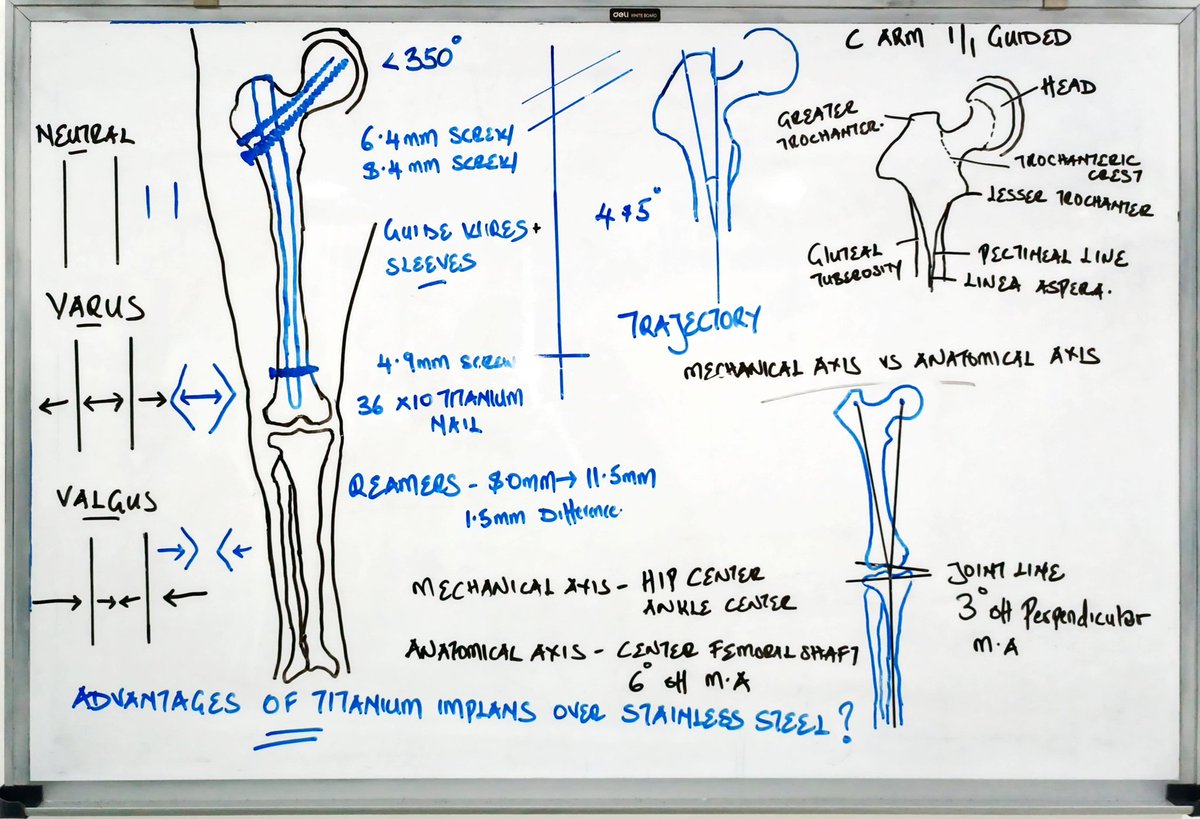 deli WHITE BOARD
C ARM 1/1 GUIDED
< 350°
6.4mm SCREW/
8.4mm SCREW/
GUIDE WIRES +
SLEEVES
4.9mm SCREW
36 X10 TITANIUM
NAIL
REAMERS - 8.0mm → 11.5mm
1.5mm Difference.
NEUTRAL
VARUS
VALGUS
4 & 5°
TRAJECTORY
GREATER
TROCHANTER.
HEAD
TROCHANTERIC
CREST
LESSER TROCHANTER
GLUTEAL
TUBEROSITY
PECTINEAL LINE
LINEA ASPERA.
MECHANICAL AXIS VS ANATOMICAL AXIS
JOINT LINE
3° off Perpendicular
M.A
MECHANICAL AXIS - HIP CENTER
ANKLE CENTER
ANATOMICAL AXIS - CENTER FEMORAL SHAFT
6° off M.A
ADVANTAGES OF TITANIUM IMPLANS OVER STAINLESS STEEL?